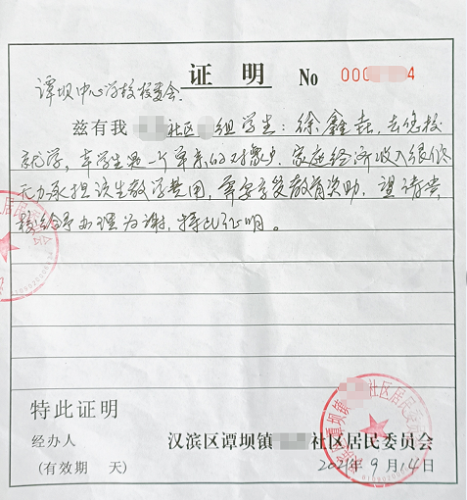 证 明 No 000 4
谭坝中心学校校委会
兹有我 社区 组学生：徐鑫垚，去您校
就学，
家庭经济收入很低
无力承担该生教学费用，需要享受教育资助，望请贵
校给予办理为谢，特此证明。
特此证明
经办人 汉滨区谭坝镇 社区居民委员会
(有效期 天) 2021年9月14日
社区居民委员会